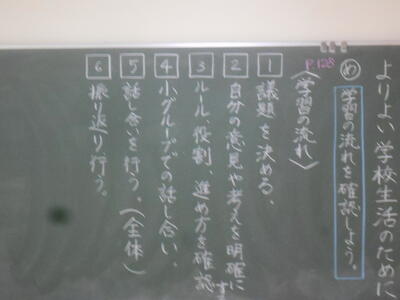 よりよい学校生活のために
め 学習の流れを確認しよう。
P.128
〈学習の流れ〉
1 議題を決める、
2 自分の意見や考えを明確にする
3 ルール、役割、進め方を確認
4 小グループでの話し合い、
5 話し合いを行う。(全体)
6 振り返り行う。